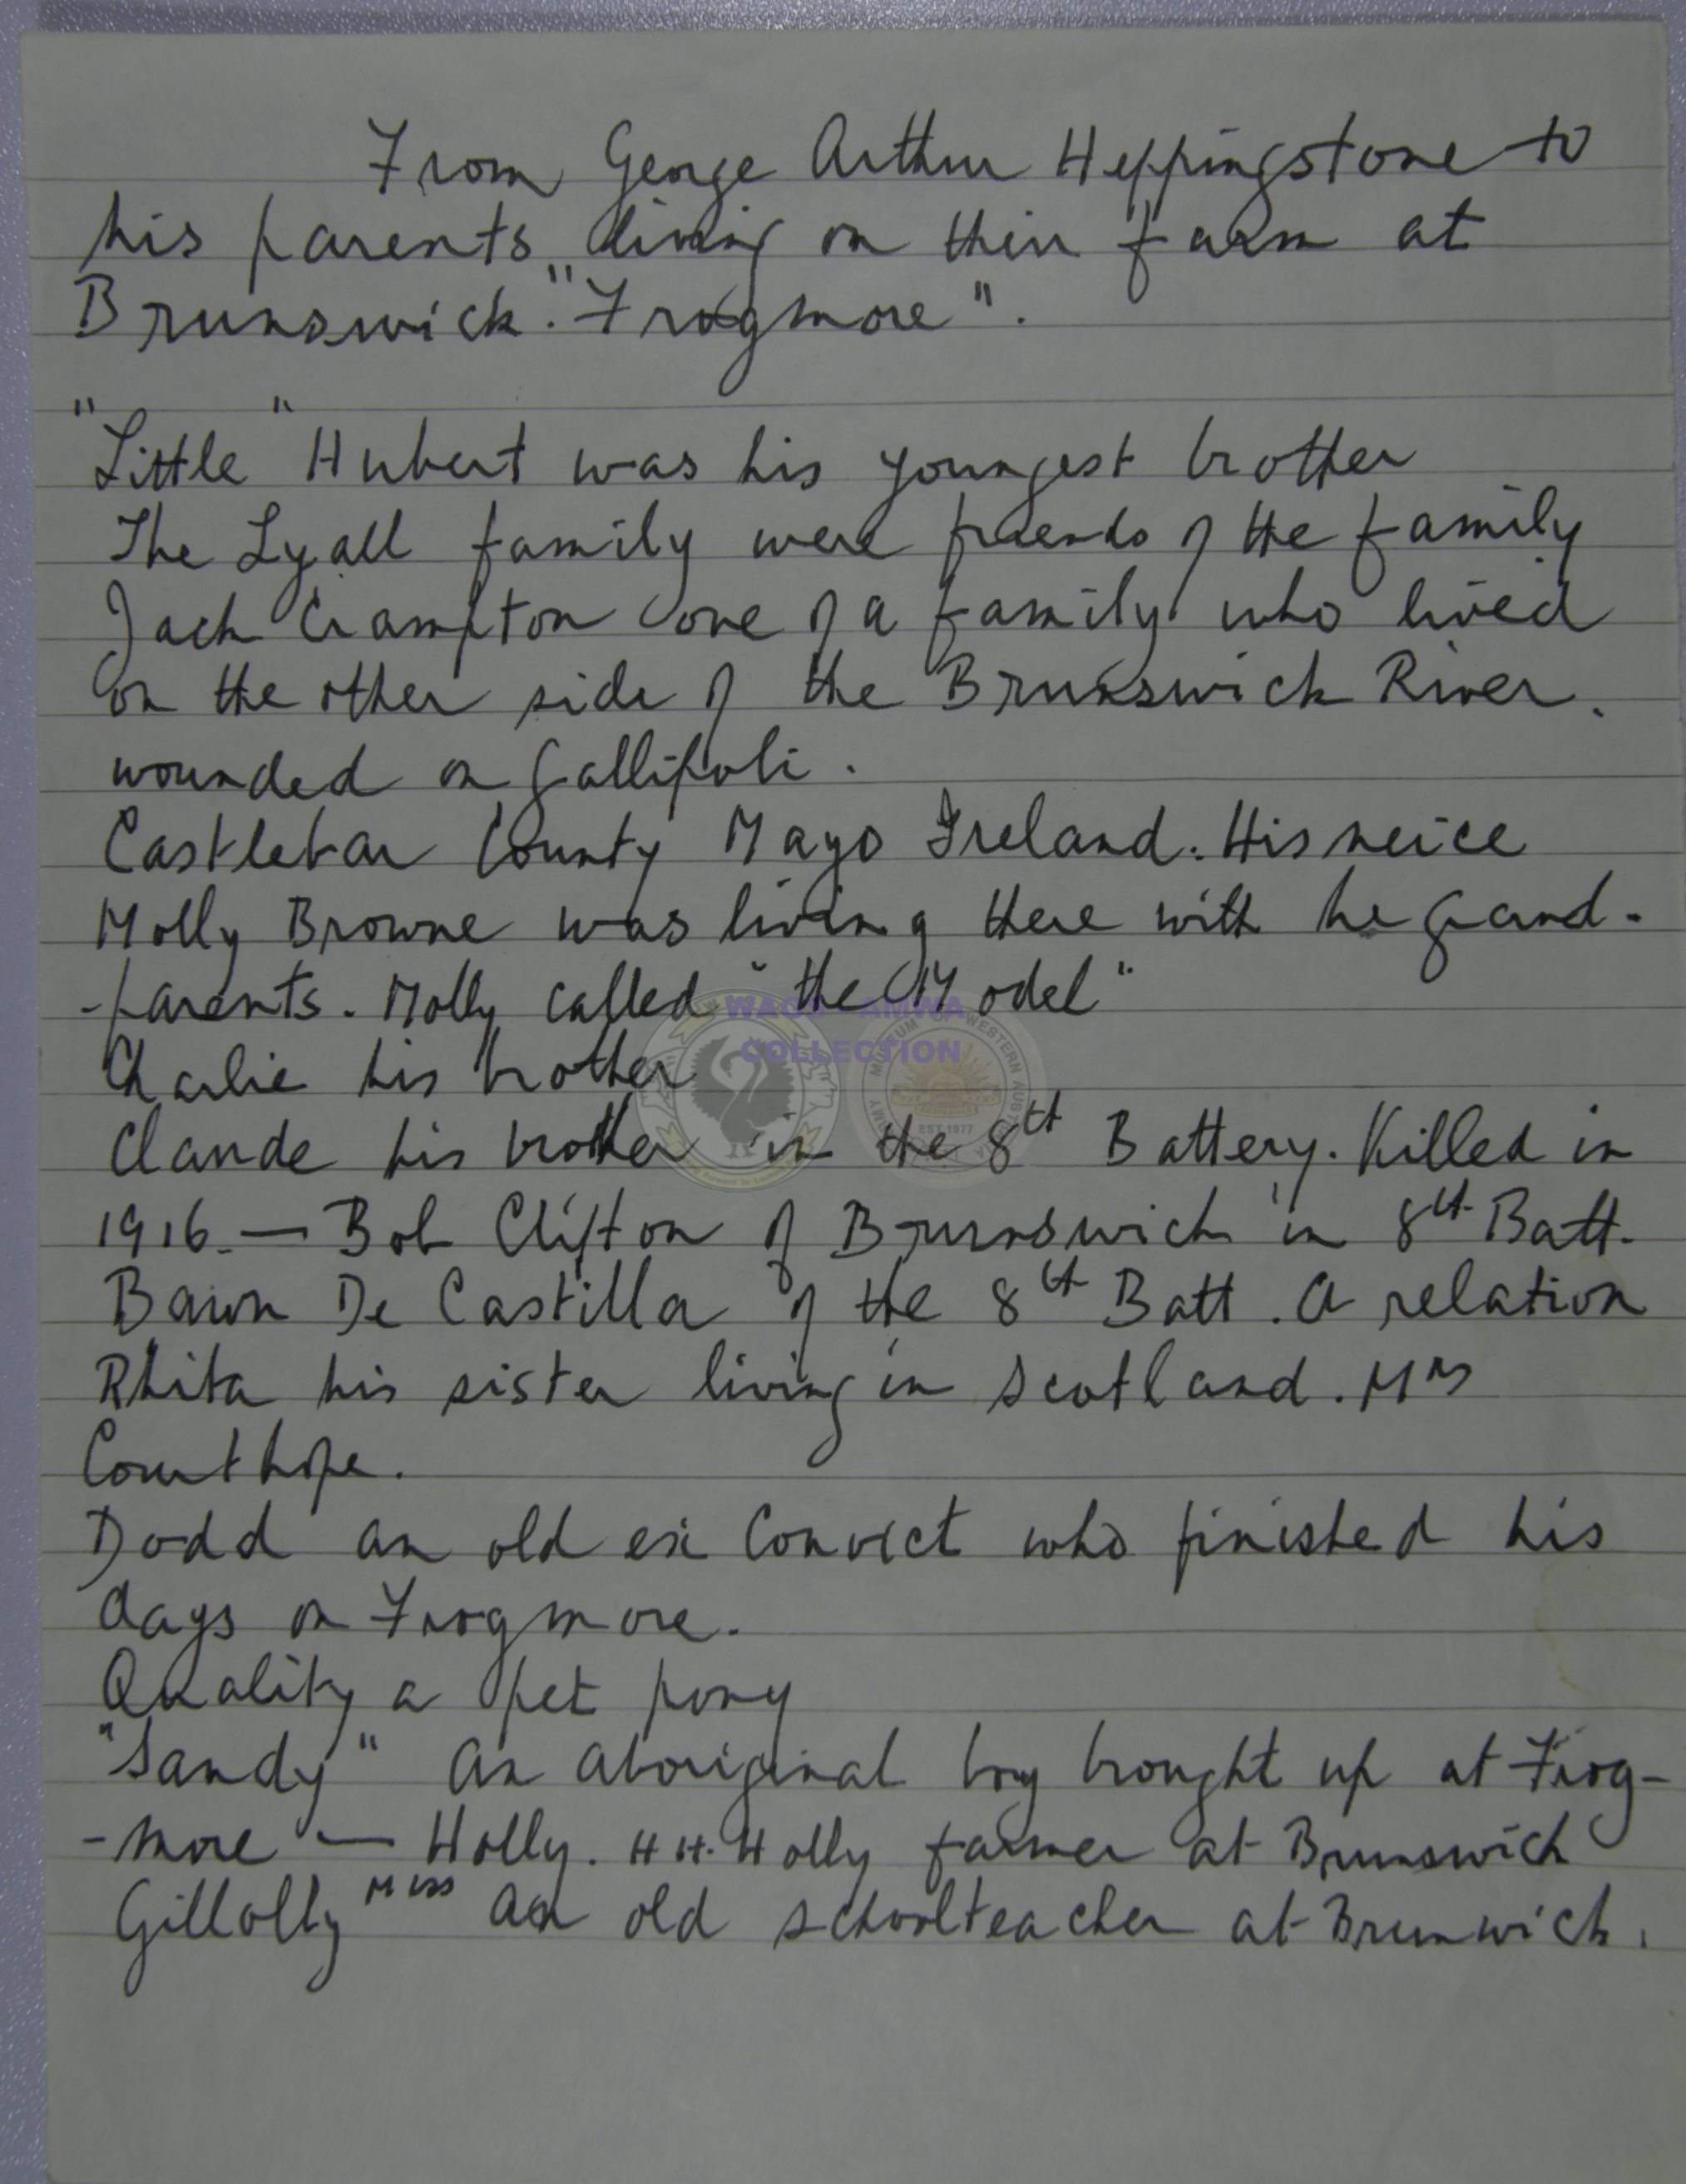 From George Arthur Heppingstone to
his parents living on their farm at
Brunswick. "Frogmore".
"Little" Hubert was his youngest brother
The Lyall family were friends of the family
Jack Crampton one of a family who lived
on the other side of the Brunswick River.
wounded on Gallipoli.
Castlebar County Mayo Ireland. His neice
Molly Browne was living there with he grand-
-parents. Molly called "the Model"
WACO - AMWA
COLLECTION
Charlie his brother
Claude his brother in the 8th Battery. Killed in
1916. — Bob Clifton of Brunswick in 8th Batt.
De Castilla of the 8th Batt. A relation
Rhita his sister living in Scotland. Mrs
Courthope.
Dodd an old ex Convict who finished his
days on Frogmore.
Quality a pet pony
"Sandy" an aboriginal boy brought up at Frog-
-more — Holly. H H. Holly farmer at Brunswick
Gillolly Miss an old schoolteacher at Brunwick.